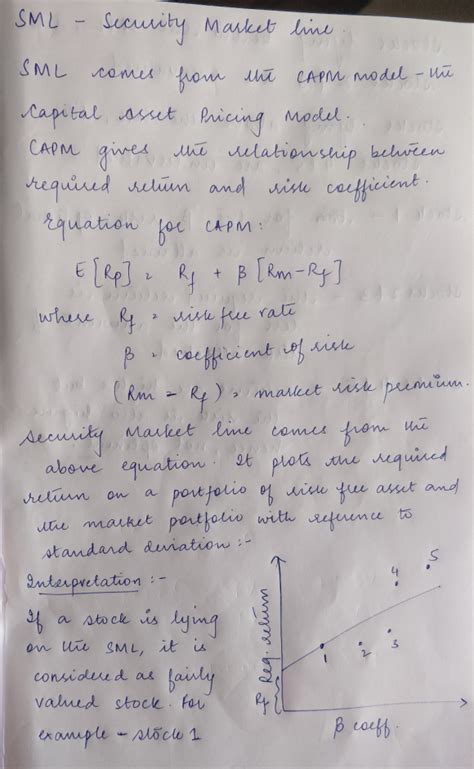 SML - Security Market line.
SML comes from the CAPM model - the
Capital Asset Pricing Model.
CAPM gives the relationship between
required return and risk coefficient.
Equation for CAPM:
E [Rp] = Rf + β [Rm-Rf]
where Rf = risk free rate
β = coefficient of risk
(Rm - Rf) = market risk premium.
Security Market line comes from the
above equation. It plots the required
return on a portfolio of risk free asset and
the market portfolio with reference to
standard deviation :-
Interpretation :-
If a stock is lying
on the SML, it is
considered as fairly
valued stock. For
example - stock 1
Req. return
Rf
1
2
3
4
5
β coeff.